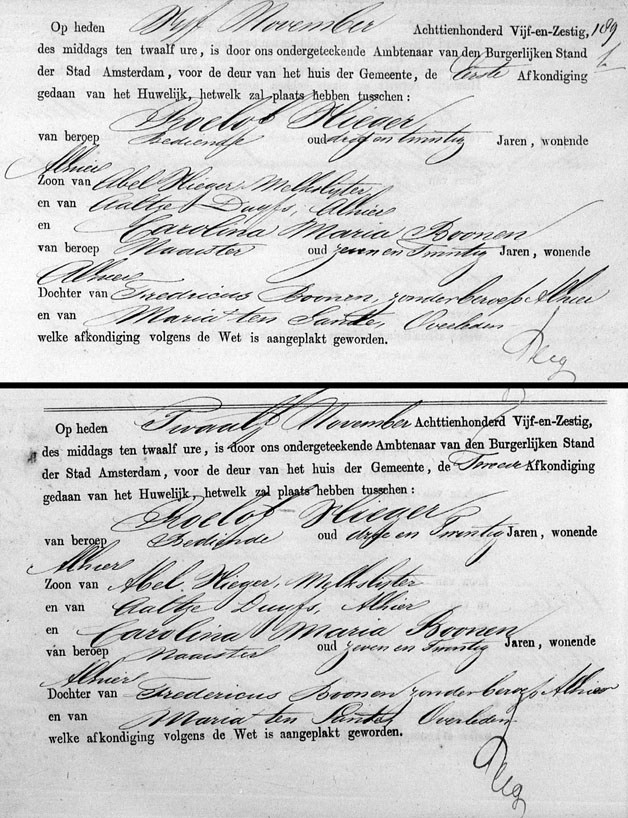 Op heden Vijf November Achttienhonderd Vijf-en-Zestig,
des middags ten twaalf ure, is door ons ondergeteekende Ambtenaar van den Burgerlijken Stand
der Stad Amsterdam, voor de deur van het huis der Gemeente, de Eerste Afkondiging
gedaan van het Huwelijk, hetwelk zal plaats hebben tusschen:
Roelof Klieger
van beroep Bediende oud drie en twintig Jaren, wonende
Alhier
Zoon van Abel Klieger, Melkslijter
en van Aaltje Duyfs, Alhier
en Carolina Maria Boonen
van beroep Naaister oud zeven en Twintig Jaren, wonende
Alhier
Dochter van Fredericus Boonen, zonder beroep Alhier
en van Maria ten Sande, Overleden
welke afkondiging volgens de Wet is aangeplakt geworden.
Op heden Twaalf November Achttienhonderd Vijf-en-Zestig,
des middags ten twaalf ure, is door ons ondergeteekende Ambtenaar van den Burgerlijken Stand
der Stad Amsterdam, voor de deur van het huis der Gemeente, de Tweede Afkondiging
gedaan van het Huwelijk, hetwelk zal plaats hebben tusschen:
Roelof Klieger
van beroep Bediende oud drie en Twintig Jaren, wonende
Alhier
Zoon van Abel Klieger, Melkslijter
en van Aaltje Duyfs, Alhier
en Carolina Maria Boonen
van beroep Naaister oud zeven en Twintig Jaren, wonende
Alhier
Dochter van Fredericus Boonen zonder beroep, Alhier
en van Maria ten Sande, Overleden
welke afkondiging volgens de Wet is aangeplakt geworden.